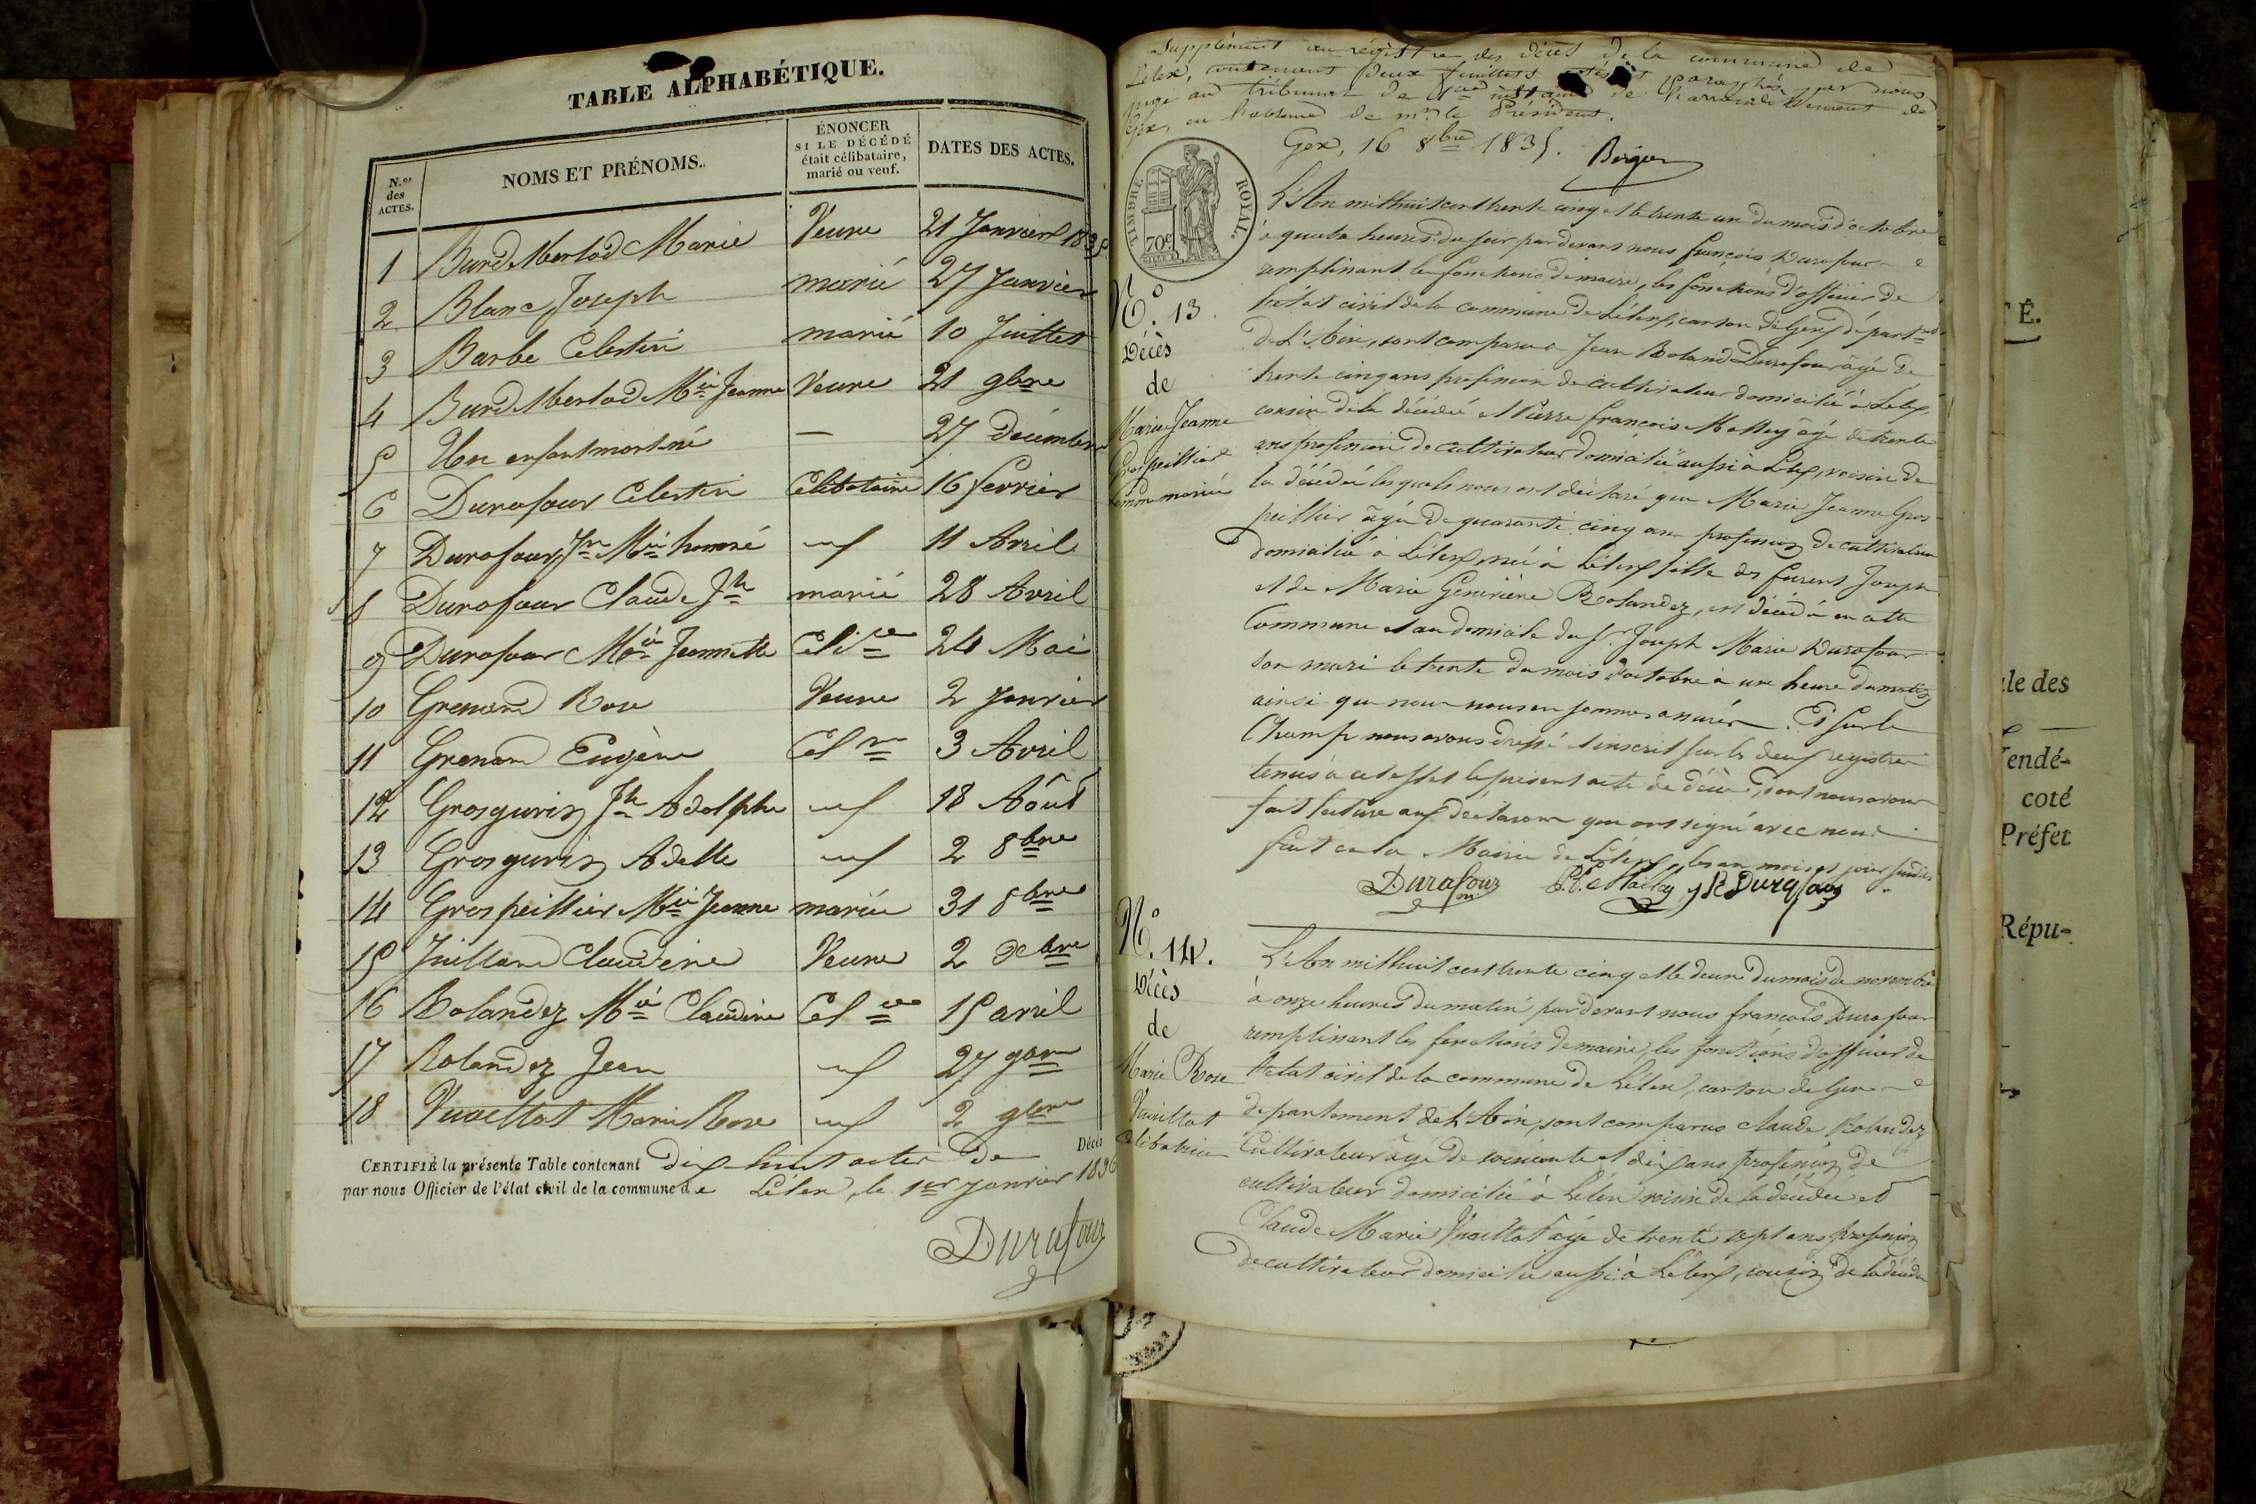 TABLE ALPHABÉTIQUE.
N.os des ACTES.
NOMS ET PRÉNOMS.
ÉNONCER SI LE DÉCÉDÉ était célibataire, marié ou veuf.
DATES DES ACTES.
1 Marie Veuve 21 Janvier 1835
2 Blanc Joseph marié 27 Janvier
3 Barbe Celestin marié 10 Juillet
4 Mie Jeanne Veuve 21 9bre
5 Un enfant mort né — 27 décembre
6 Durafour Celestin Celibataire 16 fevrier
7 Durafour Mie honoré 11 Avril
8 Durafour Claude Jh marié 28 Avril
9 Durafour Mie Jeannette Celire 24 Mai
10 Grenard Rose Veuve 2 Janvier
11 Grenard Eugène Cel re 3 Avril
12 Grosgurin Jh Adolphe 18 Août
13 Grosgurin Adelle 2 8bre
14 Grospeillier Mie Jeanne mariée 31 8bre
15 Juilland Claudine Veuve 2
16 Rolandez Mie Claudine Cel re 15 avril
17 Rolandez Jean 27
18 Vuaillat Marie Rose 2 9bre
CERTIFIÉ la présente Table contenant dix huit actes de Décès
par nous Officier de l'état civil de la commune de Lélex, le 1er Janvier 1836
Durafour
Supplément au régistre des décès de la commune de
Lelex, contenant deux feuillets cotés et paraphés par nous
juge au tribunal de 1ère instance de l'arrondissement de
Gex, en l'absence de mr le Président.
Gex, 16 8bre 1835.
TIMBRE ROYAL.
70c
N.o 13.
Décès
de
Marie Jeanne
Grospeillier
femme mariée
L'An mil huit cent trente cinq et le trente un du mois d'octobre
à quatre heures du soir par devant nous françois Durafour
remplissant les fonctions de maire, les fonctions d'officier de
l'état civil de la commune de Lélex, canton de Gex, départnt
de L'Ain, sont comparus Jean Roland Durafour âgé de
trente cinq ans profession de cultivateur domicilié à Lelex
cousin de la décédée et Pierre françois Mathey âgé de trente
ans profession de cultivateur domicilié aussi à Lélex, voisin de
la décédée lesquels nous ont déclaré que Marie Jeanne Gros-
peillier âgée de quarante cinq ans profession de cultivateur
domiciliée à Lélex, née à Lélex fille des furent Joseph
et de Marie Geneviève Rolandez, est décédée en cette
Commune et au domicile du Sr Joseph Marie Durafour
son mari le trente du mois d'octobre à une heure du matin
ainsi que nous nous en sommes assurés. Et sur le
Champ nous avons dressé et inscrit sur les deux registres
tenus à cet effet le présent acte de décès, dont nous avons
fait lecture aux déclarans qui ont signé avec nous
fait en la Mairie de Lélex, les an mois et jour susdits
Durafour JR Durafour
N.o 14.
Décès
de
Marie Rose
Vuaillat
Celibataire
L'An mil huit cent trente cinq et le deux du mois de novembre
à onze heures du matin par devant nous françois Durafour
remplissant les fonctions de maire, les fonctions d'officier de
l'état civil de la commune de Lélex, canton de Gex
département de l'Ain, sont comparus Claude Rolandez
Cultivateur âgé de soixante et dix ans profession de
cultivateur domicilié à Lélex voisin de la décédée et
Claude Marie Vuaillat âgé de trente sept ans profession
de cultivateur domicilié aussi à Lélex, cousin de la décédée
É.
le des
endé-
coté
Préfet
Répu-